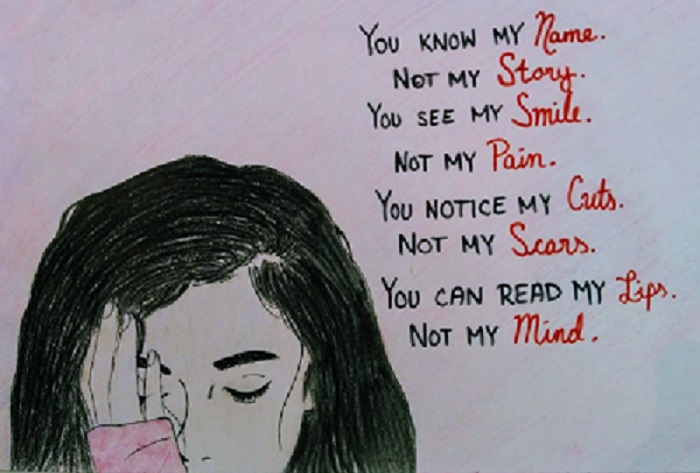 You know my Name.
Not my Story.
You see my Smile.
Not my Pain.
You notice my Cuts.
Not my Scars.
You can read my Lips.
Not my Mind.